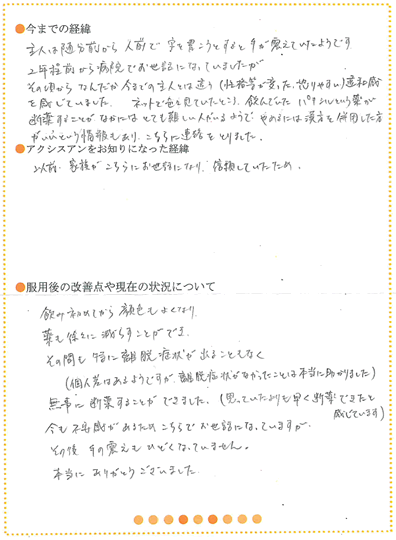 ●今までの経緯
主人は随分前から人前で字を書こうとすると手が震えていたようです
2年程前から病院でお世話になっていましたが
その頃からなんだか今までの主人とは違う(性格等が変った、怒りやすい)違和感
を感じていました。ネットで色々見ていたところ、飲んでいたパキシルという薬が
断薬することがなかにはとても難しい人がいるようでやめるには漢方を併用した方
がいいという情報もあり、こちらに連絡をとりました。
●アクシスアンをお知りになった経緯
以前、家族がこちらにお世話になり、信頼していたため。
●服用後の改善点や現在の状況について
飲み初めてから顔色もよくなり、
薬も徐々に減らすことができ、
その間も特に離脱症状が出ることもなく
(個人差はあるようですが、離脱症状がなかったことは本当に助かりました)
無事に断薬することができました。(思っていたよりも早く断薬できたと
感じています)
今も不安感があるためこちらでお世話になっていますが、
その後手の震えもひどくなっていません。
本当にありがとうございました。